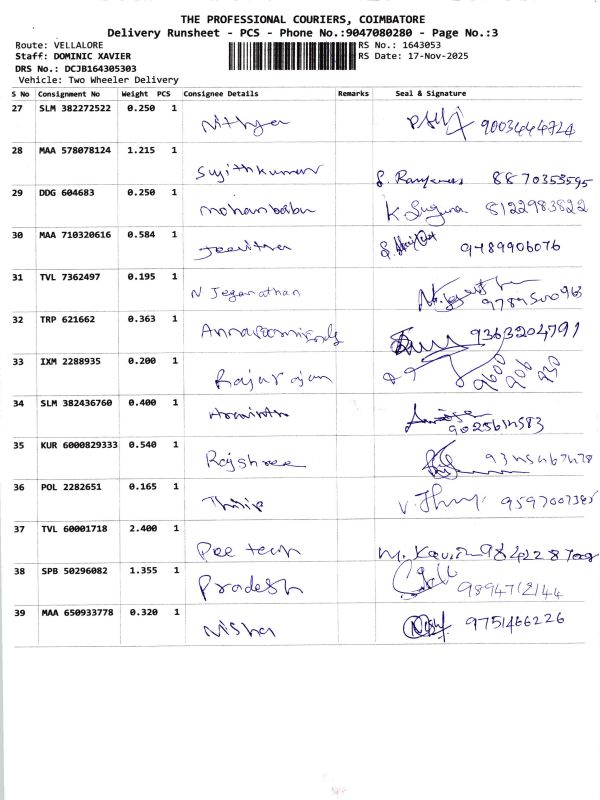 THE PROFESSIONAL COURIERS, COIMBATORE
Delivery Runsheet - PCS - Phone No.:9047080280 - Page No.:3
Route: VELLALORE RS No.: 1643053
Staff: DOMINIC XAVIER RS Date: 17-Nov-2025
DRS No.: DCJB164305303
Vehicle: Two Wheeler Delivery
S No Consignment No Weight PCS Consignee Details Remarks Seal & Signature
27 SLM 382272522 0.250 1 Nithya 9003444724
28 MAA 578078124 1.215 1 Sujithkumar 8870353595
29 DDG 604683 0.250 1 mohanbabu K Suguna 8122983822
30 MAA 710320616 0.584 1 9489906076
31 TVL 7362497 0.195 1 N Jeganathan
32 TRP 621662 0.363 1 9363204791
33 IXM 2288935 0.200 1 Rajarajan
34 SLM 382436760 0.400 1
35 KUR 6000829333 0.540 1 Rajshree
36 POL 2282651 0.165 1
37 TVL 60001718 2.400 1 Pee tech
38 SPB 50296082 1.355 1 Pradesh 9894712144
39 MAA 650933778 0.320 1 Nisha 9751466226